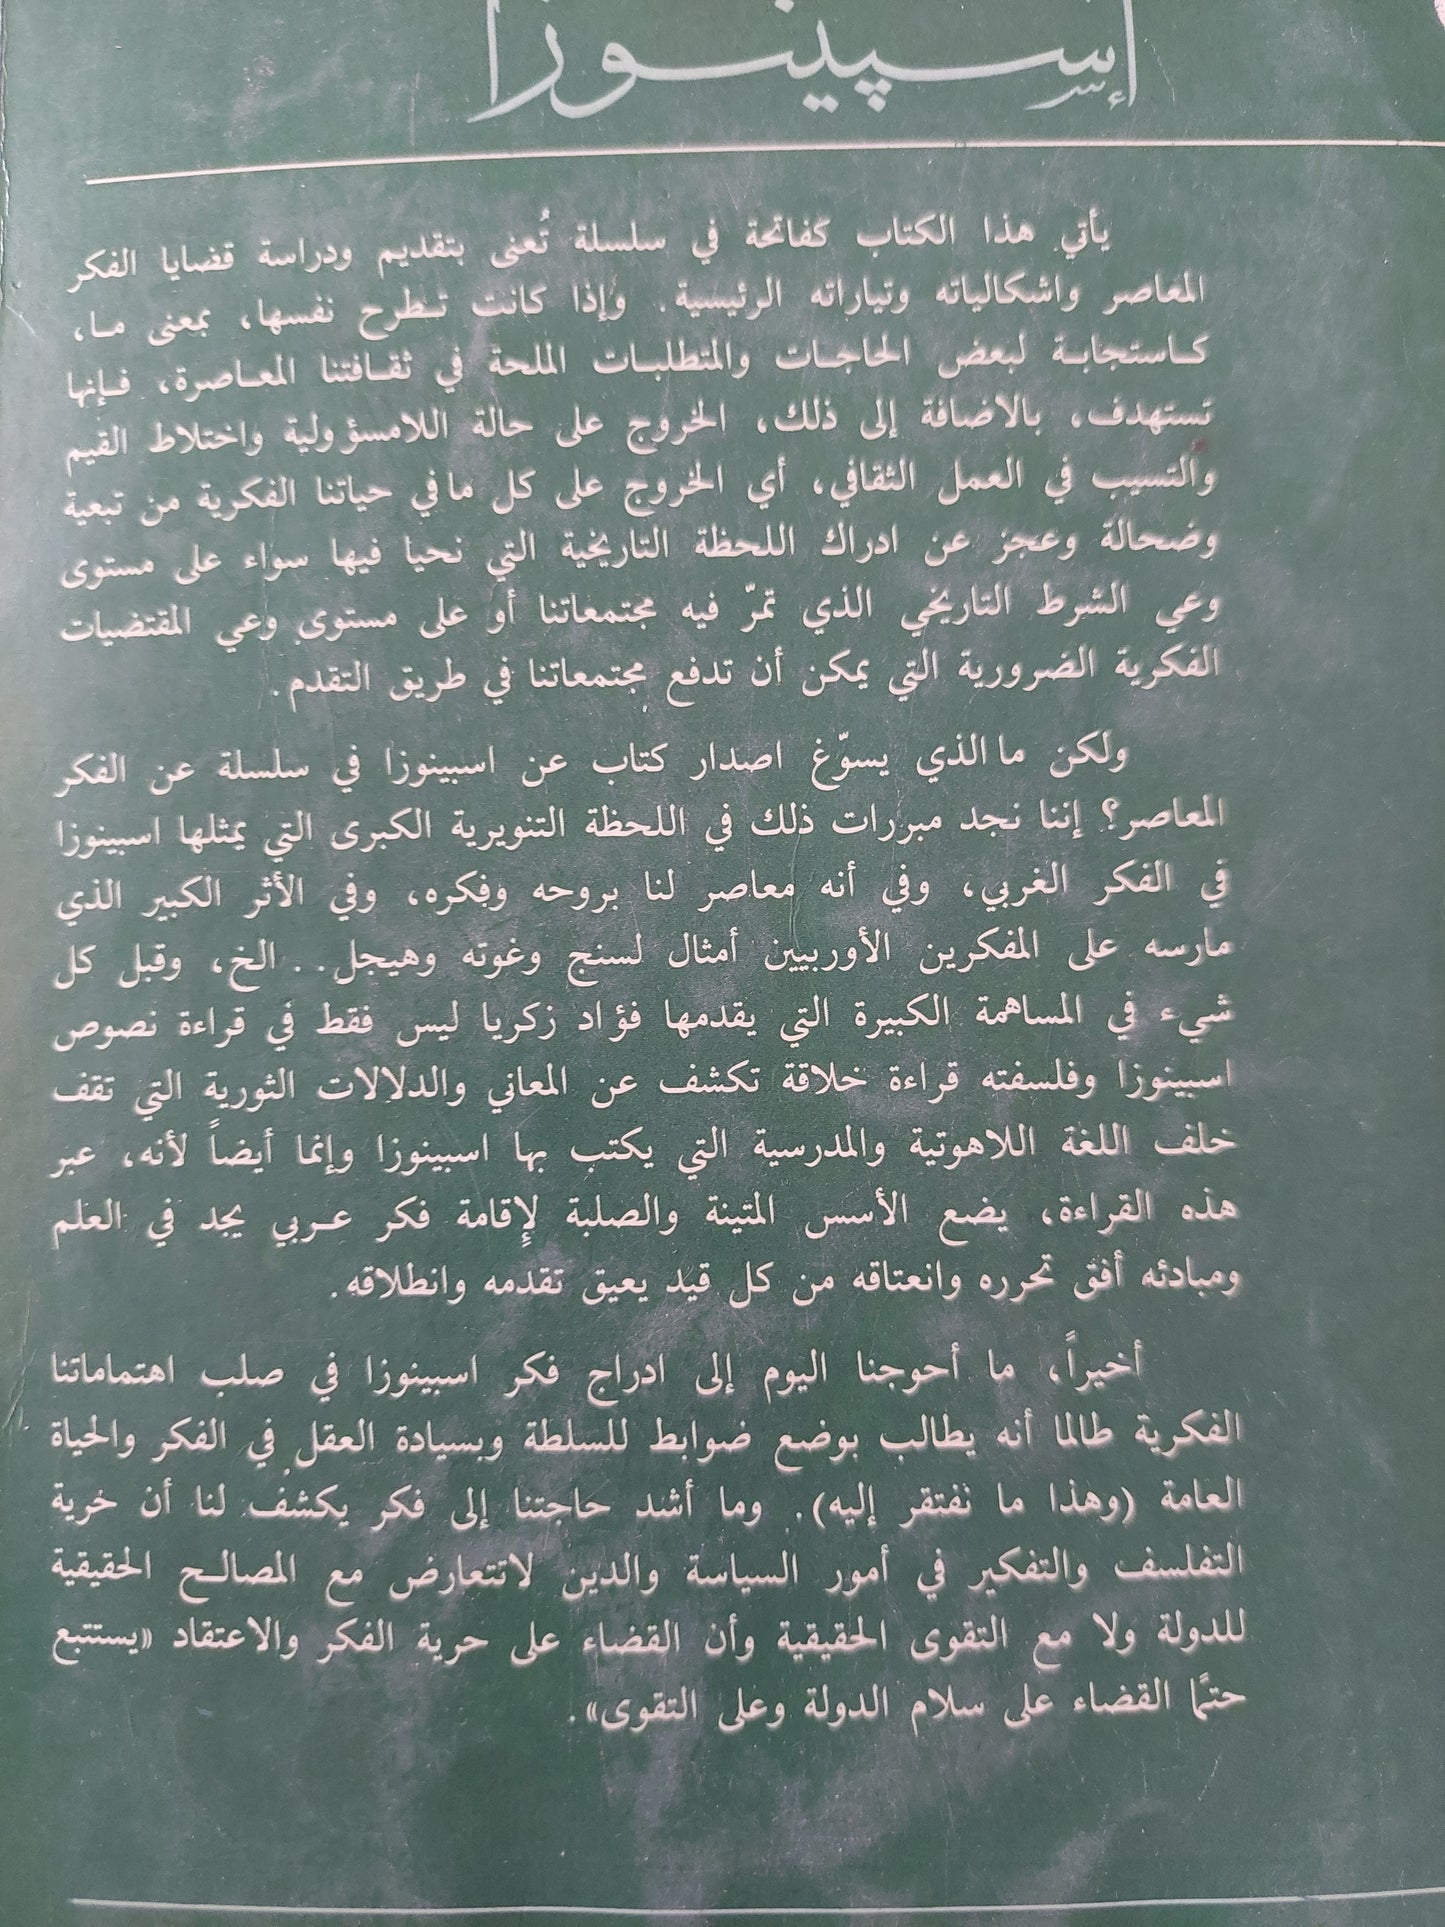 إسپينوزا
يأتي هذا الكتاب كفاتحة في سلسلة تُعنى بتقديم ودراسة قضايا الفكر
المعاصر واشكالياته وتياراته الرئيسية. وإذا كانت تطرح نفسها، بمعنى ما،
كاستجابة لبعض الحاجات والمتطلبات الملحة في ثقافتنا المعاصرة، فإنها
تستهدف، بالاضافة إلى ذلك، الخروج على حالة اللامسؤولية واختلاط القيم
والتسيب في العمل الثقافي، أي الخروج على كل مافي حياتنا الفكرية من تبعية
وضحالة وعجز عن ادراك اللحظة التاريخية التي نحيا فيها سواء على مستوى
وعي الشرط التاريخي الذي تمرّ فيه مجتمعاتنا أو على مستوى وعي المقتضيات
الفكرية الضرورية التي يمكن أن تدفع مجتمعاتنا في طريق التقدم.
ولكن ما الذي يسوّغ اصدار كتاب عن اسبينوزا في سلسلة عن الفكر
المعاصر؟ إننا نجد مبررات ذلك في اللحظة التنويرية الكبرى التي يمثلها اسبينوزا
في الفكر الغربي، وفي أنه معاصر لنا بروحه وفكره، وفي الأثر الكبير الذي
مارسه على المفكرين الأوربيين أمثال لسنج وغوته وهيجل.. الخ، وقبل كل
شيء في المساهمة الكبيرة التي يقدمها فؤاد زكريا ليس فقط في قراءة نصوص
اسبينوزا وفلسفته قراءة خلاقة تكشف عن المعاني والدلالات الثورية التي تقف
خلف اللغة اللاهوتية والمدرسية التي يكتب بها اسبينوزا وإنما أيضاً لأنه، عبر
هذه القراءة، يضع الأسس المتينة والصلبة لإقامة فكر عربي يجد في العلم
ومبادئه أفق تحرره وانعتاقه من كل قيد يعيق تقدمه وانطلاقه.
أخيراً، ما أحوجنا اليوم إلى ادراج فكر اسبينوزا في صلب اهتماماتنا
الفكرية طالما أنه يطالب بوضع ضوابط للسلطة وبسيادة العقل في الفكر والحياة
العامة (وهذا ما نفتقر إليه). وما أشد حاجتنا إلى فكر يكشف لنا أن حرية
التفلسف والتفكير في أمور السياسة والدين لاتتعارض مع المصالح الحقيقية
للدولة ولا مع التقوى الحقيقية وأن القضاء على حرية الفكر والاعتقاد «يستتبع
حتمًا القضاء على سلام الدولة وعلى التقوى».